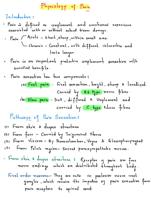 Physiology of Pain
Introduction:
- Pain is defined as unpleasant and emotional experience associated with or without actual tissue damage.
- Pain Acute = Short, sharp, with easily
→ Chronic = Constant, with different intensities and lasts longer
- Pain is an important protective mechanism
- Pain sensation has two components:
(1) Fast pain : Fast sensation, bright, sharp & localized
Carried by Aδ type nerve fibres
(2) Slow pain : Dull, diffused & Unpleasant and
Carried by C type fibres
Pathways of Pain Sensation:
(1) From skin & deeper structures
(2) From face = Carried by Trigeminal Nerve
(3) From Viscera = By Sympathetic, Vagus & Glossopharyngeal
(4) From Pelvic region: Sacral parasympathetic nerves
- From skin & deeper structures : Receptors of pain are free nerve endings which are distributed throughout body
First order neurons: They are cells in posterior nerve root ganglia, which receive the impulses of pain sensation from pain receptors to spinal cord